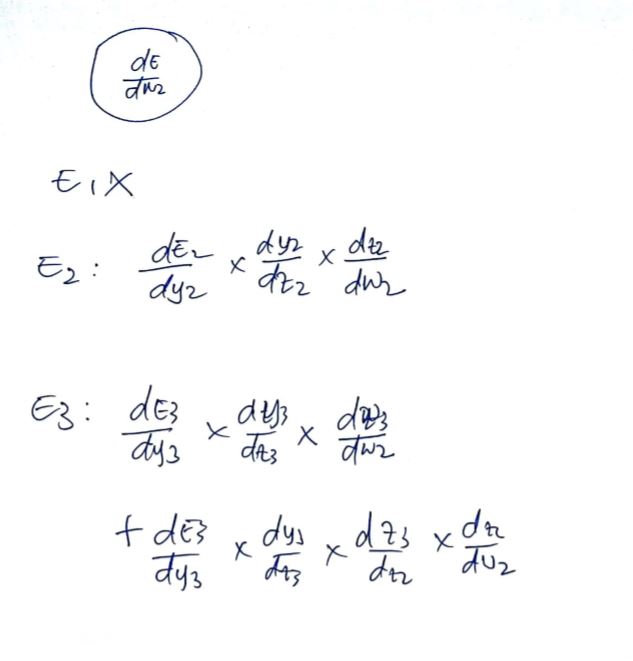 dE/dw2
E1 X
E2 : dE2/dy2 × dy2/dz2 × dz2/dw2
E3 : dE3/dy3 × dy3/dz3 × dz3/dw2
+ dE3/dy3 × dy3/dz3 × dz3/dz2 × dz2/dU2